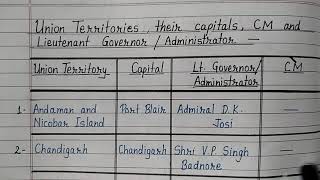 Union Territories, their capitals, CM and
Lieutenant Governor / Administrator —
Union Territory Capital Lt. Governor/ Administrator CM
1- Andaman and Nicobar Island Port Blair Admiral D.K. Josi —
2- Chandigarh Chandigarh Shri V.P. Singh Badnore —